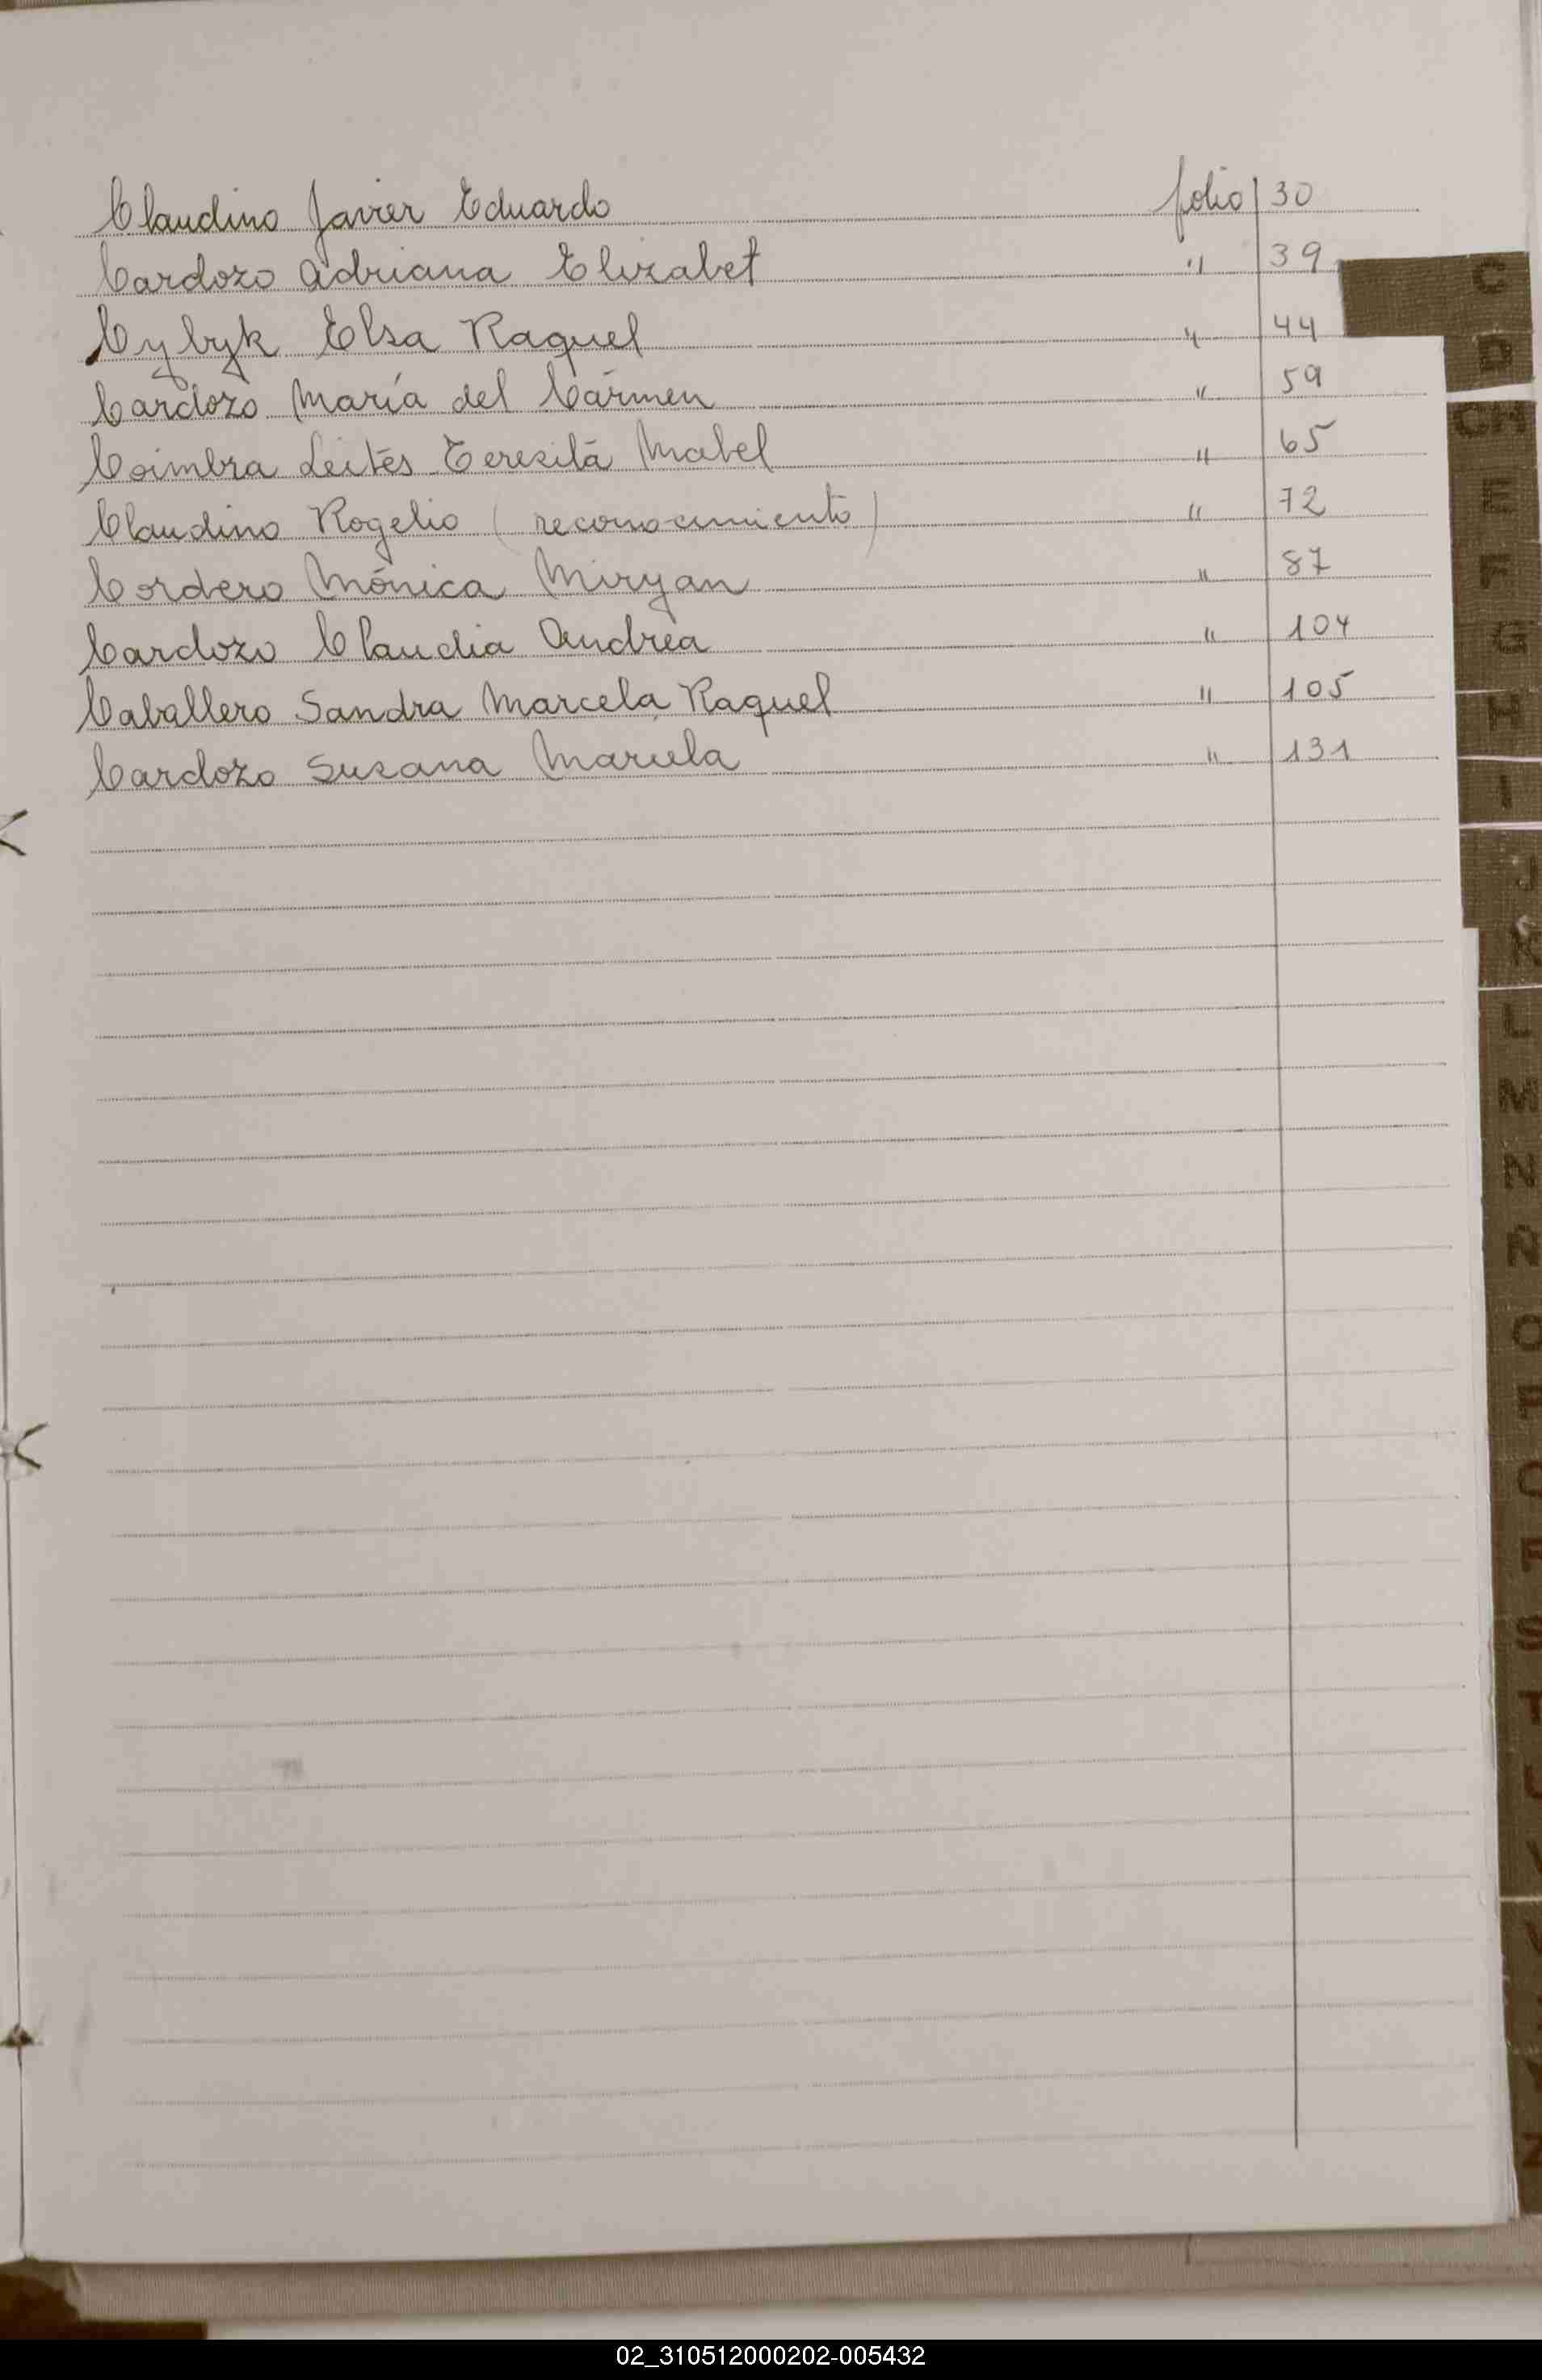 Claudino Javier Eduardo folio 30
Cardozo Adriana Elizabet " 39
Cybyk Elsa Raquel " 44
Cardozo María del Cármen " 59
Coimbra Leites Teresita Mabel " 65
Claudino Rogelio (reconocimiento) " 72
Cordero Mónica Miryan " 87
Cardozo Claudia Andrea " 104
Caballero Sandra Marcela Raquel " 105
Cardozo Susana Mariela " 131
C
D
CH
E
F
G
H
I
J
K
L
M
N
Ñ
O
P
Q
R
S
T
U
V
Z
02_310512000202-005432